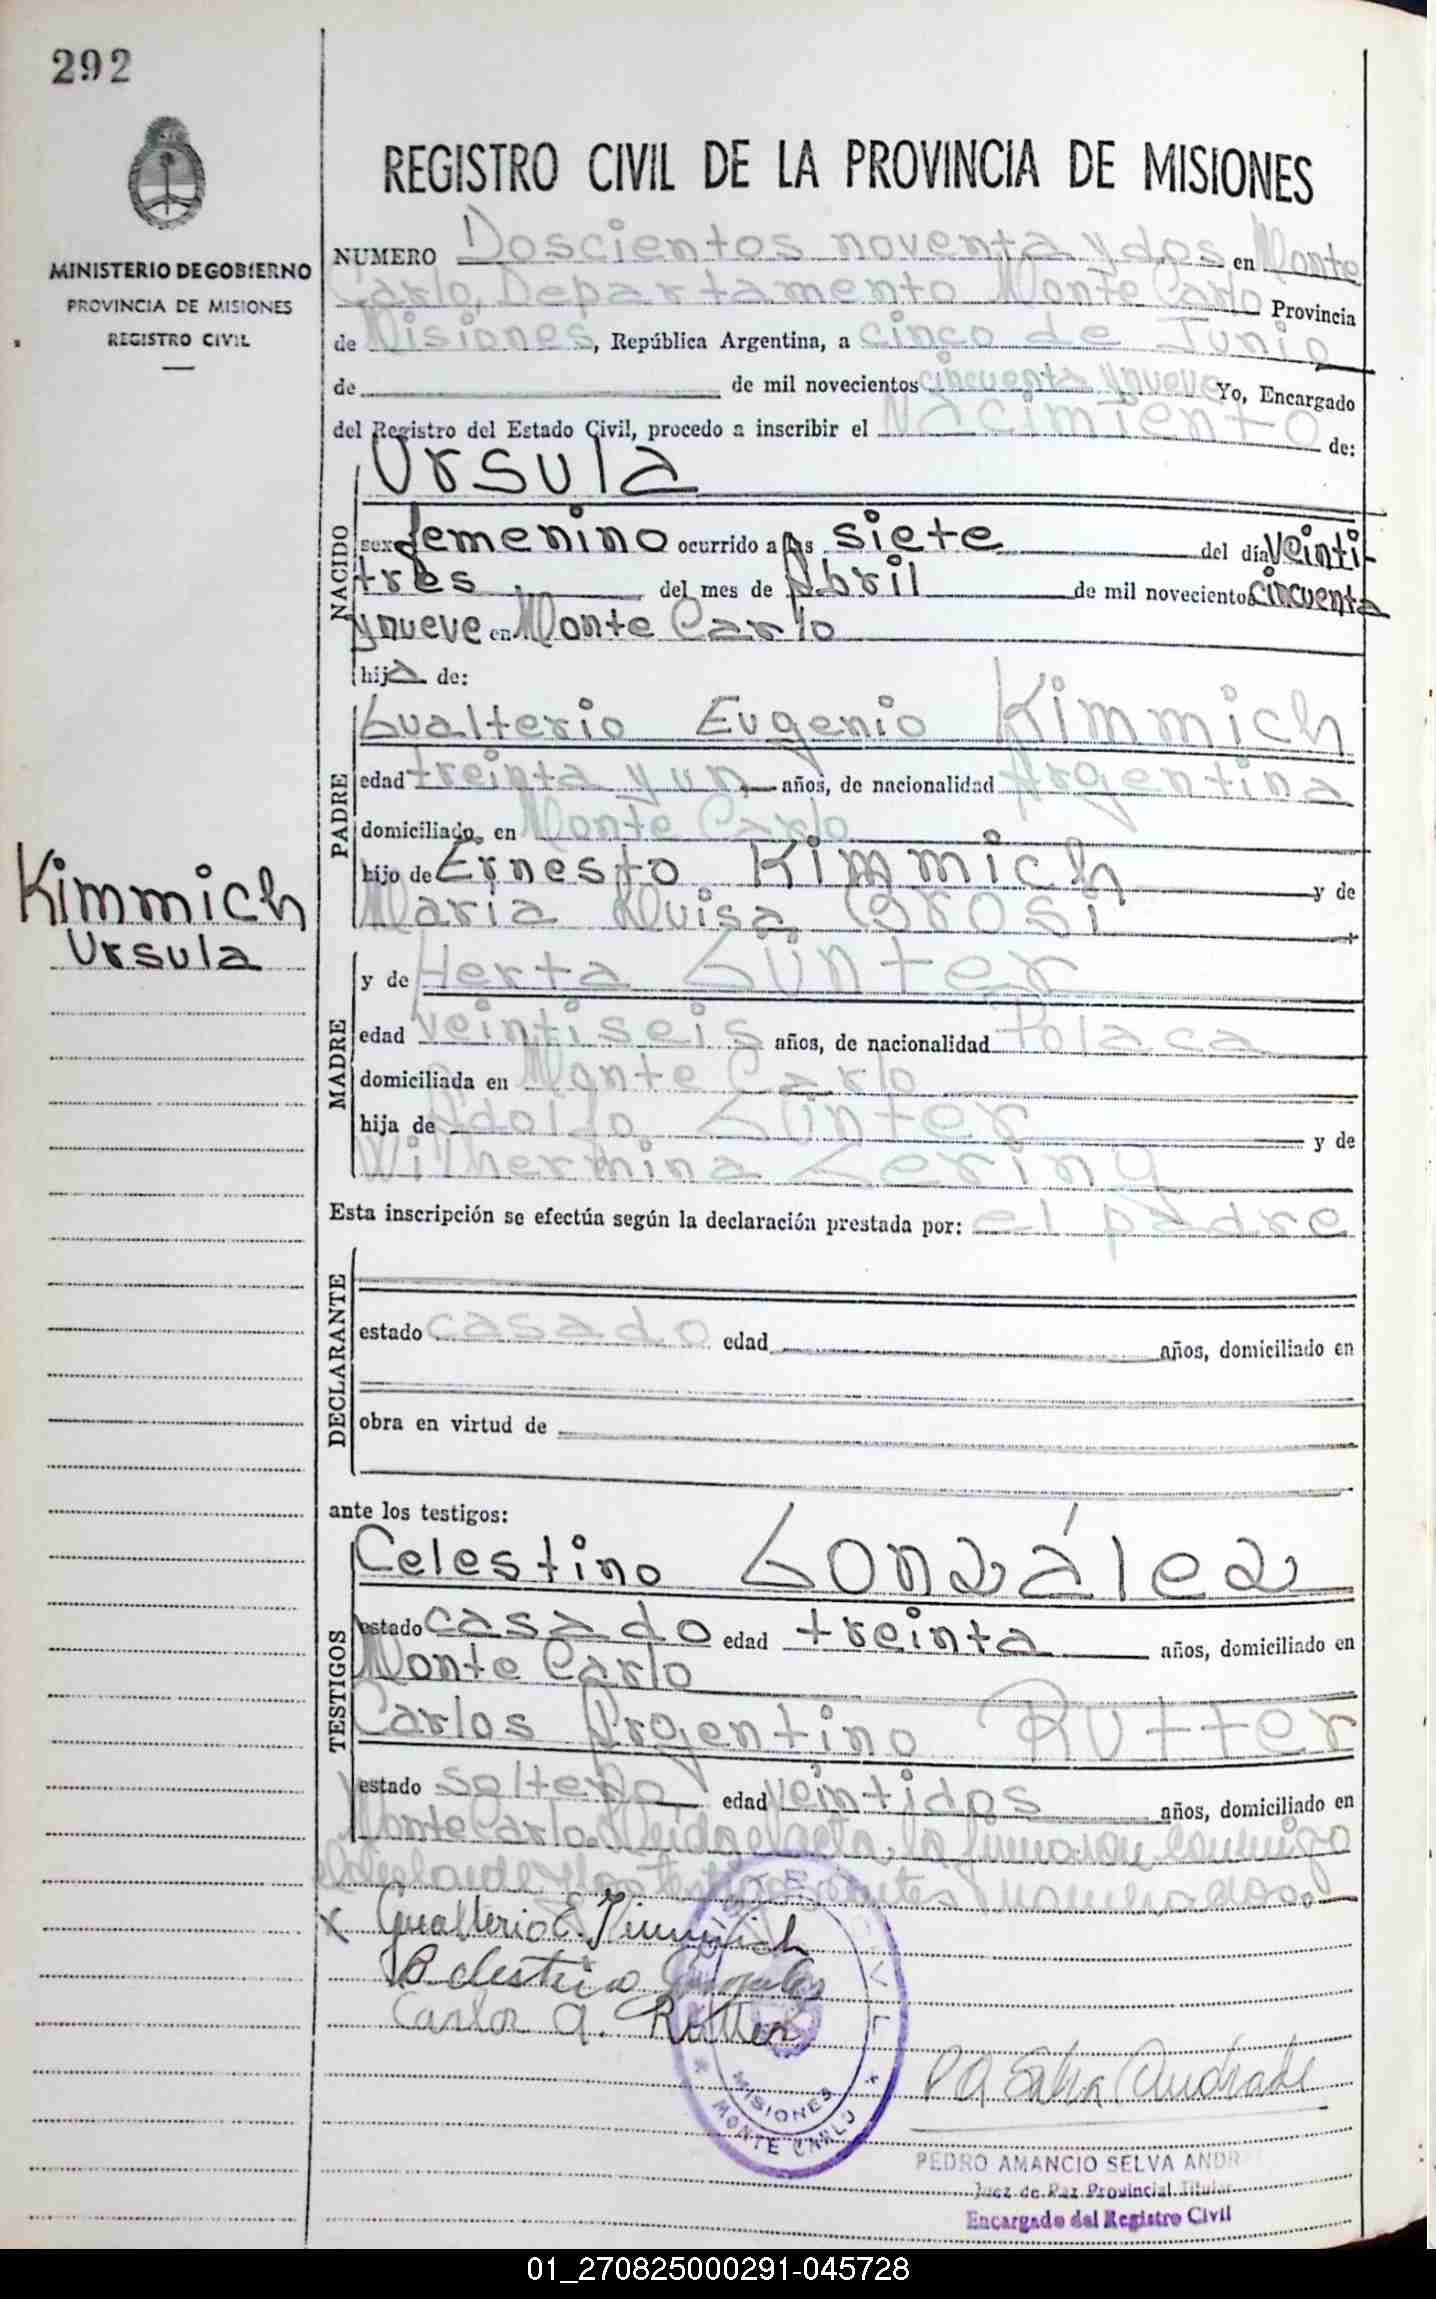 292
MINISTERIO DE GOBIERNO
PROVINCIA DE MISIONES
REGISTRO CIVIL
REGISTRO CIVIL DE LA PROVINCIA DE MISIONES
NUMERO Doscientos noventa y dos en Monte
Carlo, Departamento Monte Carlo Provincia
de Misiones, República Argentina, a cinco de Junio
de de mil novecientos cincuenta y nueve Yo, Encargado
del Registro del Estado Civil, procedo a inscribir el Nacimiento de:
NACIDO
Ursula
sexo femenino ocurrido a las siete del día veinti-
tres del mes de Abril de mil novecientos cincuenta
y nueve en Monte Carlo
hija de:
PADRE
Gualterio Eugenio Kimmich
edad treinta y un años, de nacionalidad Argentina
domiciliado en Monte Carlo
hijo de Ernesto Kimmich y de
María Luisa Brosi
Kimmich
Ursula
MADRE
y de Herta Günter
edad veintiseis años, de nacionalidad Polaca
domiciliada en Monte Carlo
hija de Adolfo Günter y de
Wilhermina Zering
Esta inscripción se efectúa según la declaración prestada por: el padre
DECLARANTE
estado casado edad años, domiciliado en
obra en virtud de
ante los testigos:
TESTIGOS
Celestino González
estado casado edad treinta años, domiciliado en
Monte Carlo
Carlos Argentino Rutter
estado soltero edad veintidos años, domiciliado en
Monte Carlo. Leida el acta, la firmaron conmigo
el declarante y los testigos antes nombrados.
x Gualterio E. Kimmich
Celestino Gonzalez
Carlos A. Rutter
CIVIL
MISIONES
* MONTE CARLO *
P A Selva Andrade
PEDRO AMANCIO SELVA ANDR
Juez de Paz Provincial Titular
Encargado del Registro Civil
01_270825000291-045728